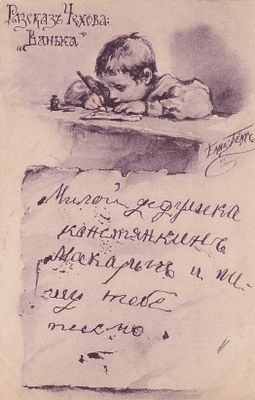 Разсказъ Чехова:
„Ванька“
Елис. Бёмъ
Милой дедушка
канстянкинъ
Макарычъ и пи-
шу тебе
писмо.